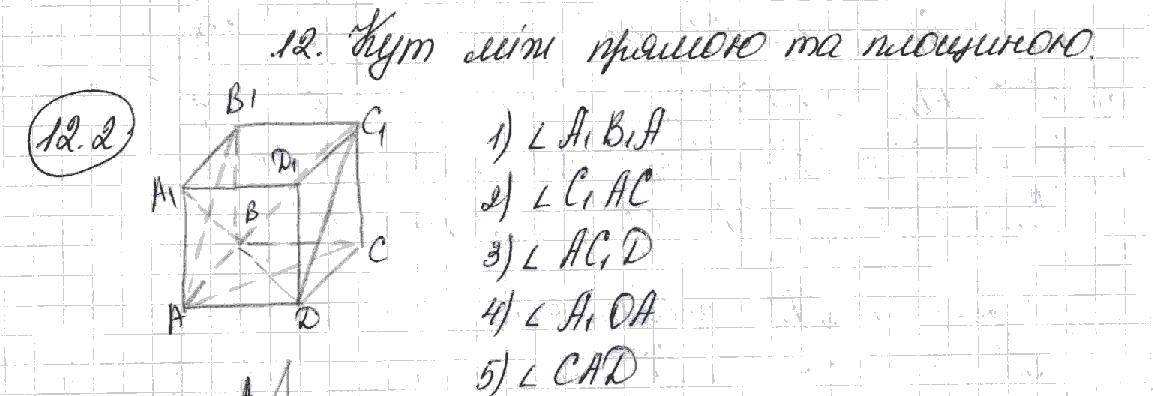 12. Кут між прямою та площиною.
12.2
B1
C1
1) ∠ A1B1A
D1
A1
2) ∠ C1AC
B
C
3) ∠ AC1D
A
D
4) ∠ A1OA
5) ∠ CAD